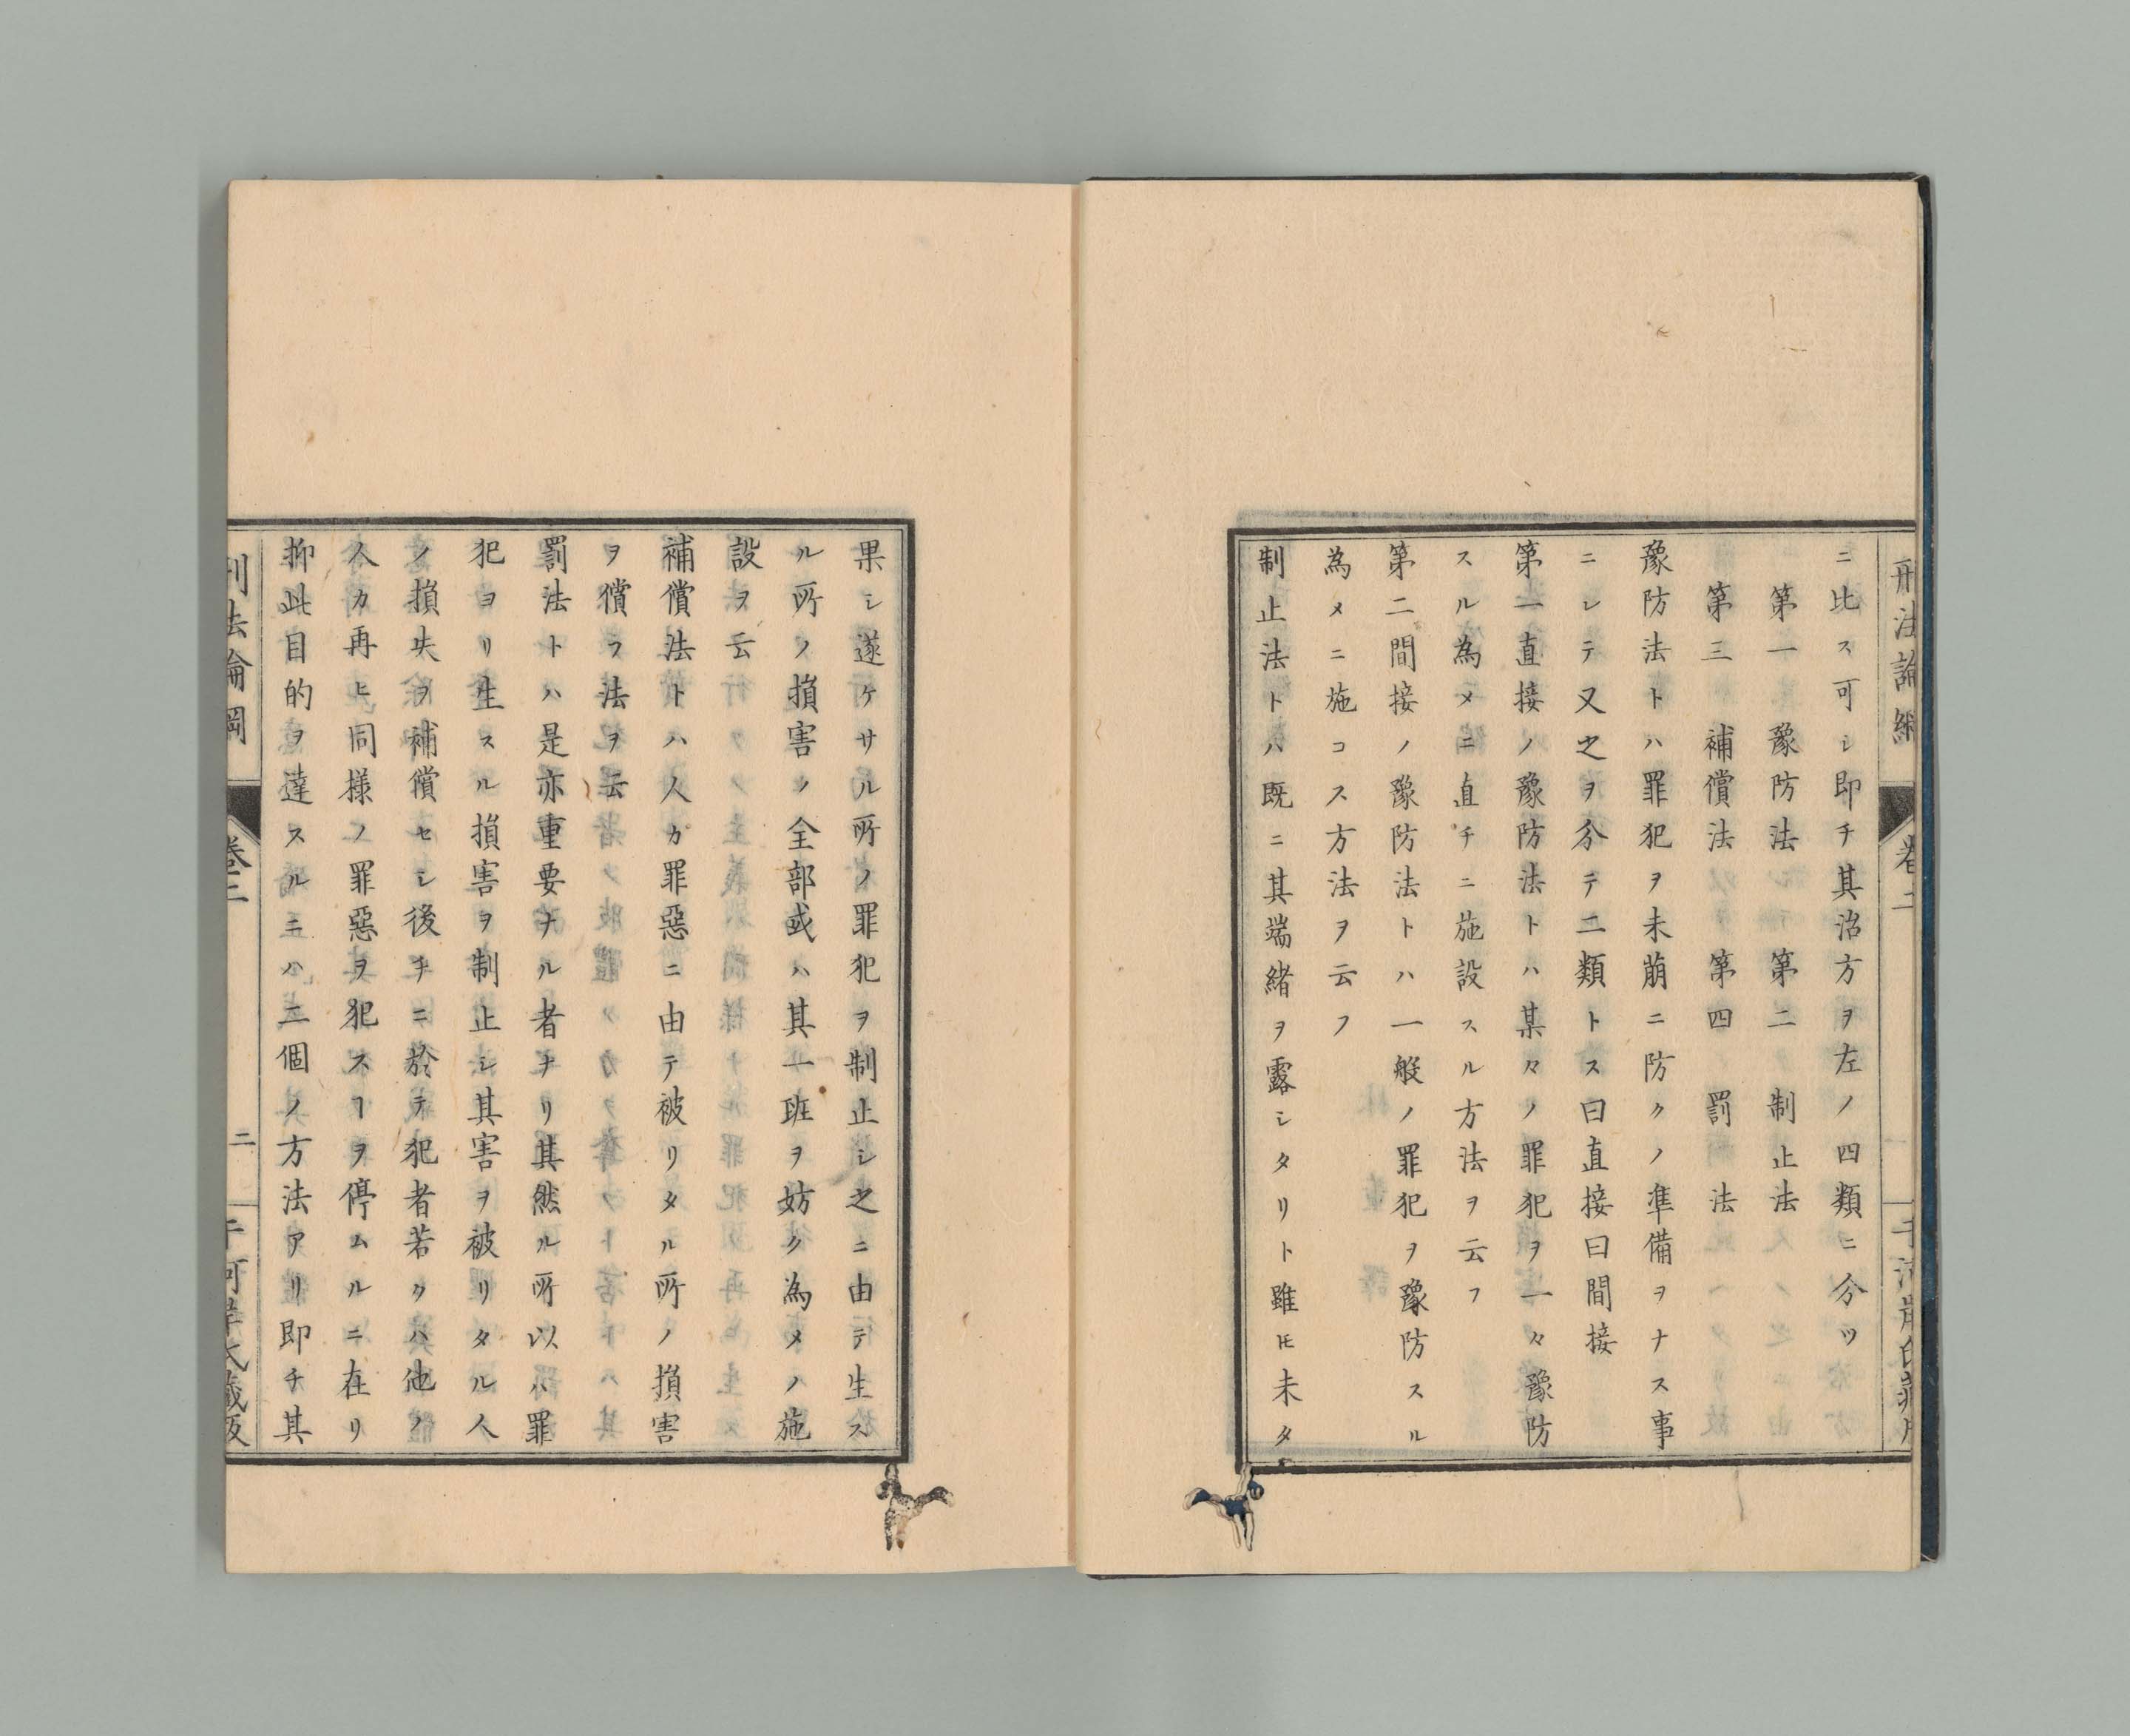 刑法論綱 卷二
ニ比ス可シ即チ其治方ヲ左ノ四類ニ分ツ
第一 豫防法 第二 制止法
第三 補償法 第四 罰法
豫防法トハ罪犯ヲ未萠ニ防クノ準備ヲナス事
ニレテ又之ヲ分テ二類トス曰直接曰間接
第一直接ノ豫防法トハ某々ノ罪犯ヲ一々豫防
スル為メニ直チニ施設スル方法ヲ云フ
第二間接ノ豫防法トハ一般ノ罪犯ヲ豫防スル
為メニ施コス方法ヲ云フ
制止法トハ既ニ其端緒ヲ露シタリト雖ㇶモ未タ
果シ遂ケサル所ノ罪犯ヲ制止シ之ニ由テ生ス
ル所ノ損害ノ全部或ハ其一班ヲ妨ク為メノ施
設ヲ云
補償法トハ人カ罪惡ニ由テ被リタル所ノ損害
ヲ償フ法ヲ云
罰法トハ是亦重要ナル者ナリ其然ル所以ハ罪
犯ヨリ生スル損害ヲ制止シ其害ヲ被リタル人
ノ損失ヲ補償セシ後チニ於テ犯者若クハ他ノ
人カ再ヒ同様ノ罪惡ヲ犯スヿヲ停ムルニ在リ
抑此目的ヲ達スルニハ二個ノ方法アリ即チ其
刑法論綱 卷二 二